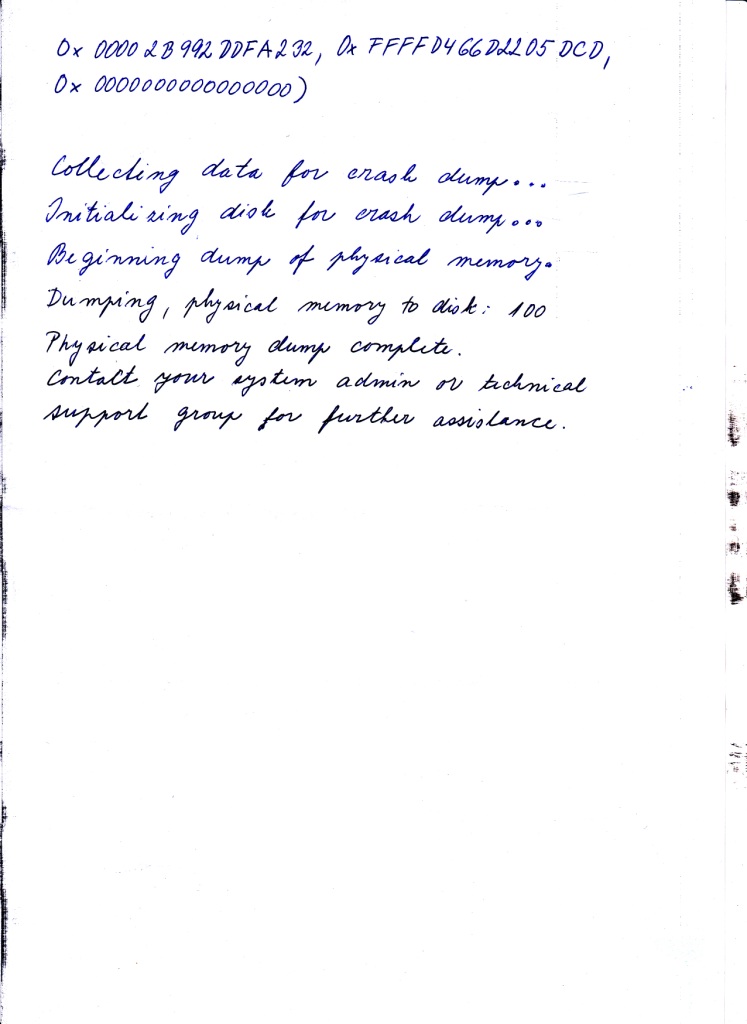 0x 00002B992DDFA232, 0x FFFFD466D2205DCD,
0x 0000000000000000)
Collecting data for crash dump...
Initializing disk for crash dump...
Beginning dump of physical memory.
Dumping, physical memory to disk: 100
Physical memory dump complete.
Contact your system admin or technical
support group for further assistance.